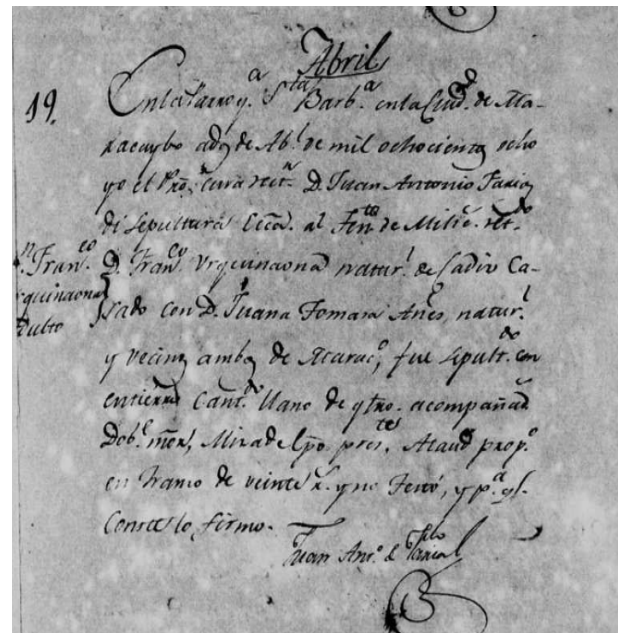 Abril
19.
En la Parroq.ª S.ta Barb.ª en la Ciud.d de Ma-
racaybo a dos de Ab.l de mil ochocientos ocho
yo el Pro. cura rect.r D. Juan Antonio Faria
di Sepultura Ecca. al Ten.te de Milic.s ret.do
n Fran.co D. Fran.co Urquinaona natur.l de Cadiz Ca-
rquinaona sado con D. Juana Tomasa Anes, natur.l
Adulto y vecinos ambos de Marac.o, fue Sepult.do en
entierro Cant.do llano de qtro. acompañad.s
Dob.e men.r, Misa de Cpo. pres.te, Ataud prop.o
en tramo de veinte r.s y no Testó, y p.a q.e
Conste lo firmo.
Juan Ant.o de Faria